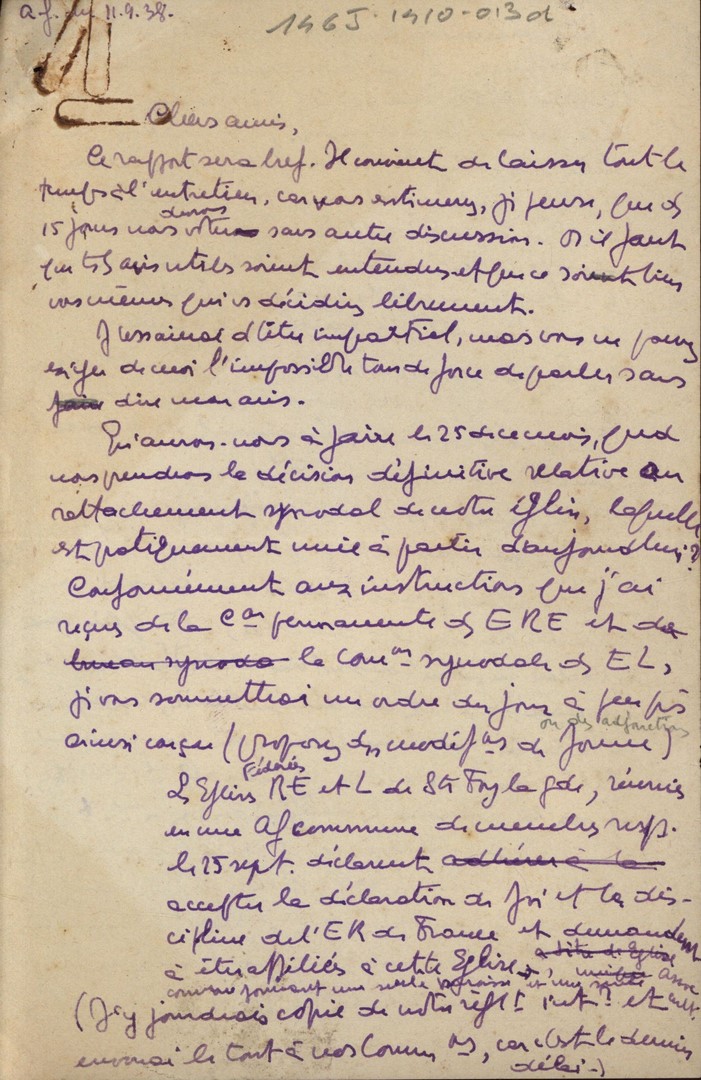 A.G. du 11.9.38.
146J 1410-013d
Chers amis,
Ce rapport sera bref. Il convient de laisser tout le
temps à l'entretien, car vous estimerez, je pense, que ds
15 jours nous devrons voter sans autre discussion. Or il faut
que ts ls avis utiles soient entendus et que ce soient bien
vous-mêmes qui vs décidiez librement.
J'essaierai d'être impartiel, mais vous ne pouvez
exiger de moi l'impossible tour de force de parler sans
faire dire mon avis.
Qu'aurons-nous à faire le 25 de ce mois, quand
nous prendrons la décision définitive relative au
rattachement synodal de notre Église, laquelle
est pratiquement unie à partir d'aujourd'hui ?
Conformément aux instructions que j'ai
reçues de la Con permanente des ERE et de
bureau synoda la Comon synodale des EL,
je vous soumettrai un ordre du jour à peu près
ou des adjonctions
ainsi conçu (proposez des modifons de forme)
Fédérées
Ls Eglises RE et L de Ste Foy la gde, réunies
en une AG commune de membres resp.
le 25 sept. déclarent adhérer à la
accepter la déclaration de foi et la dis-
cipline de l'ER de France et demandent
à être affiliés à cette Eglise
comme formant une seule paroisse et une seule Assoc cult.
(J'y joindrais copie de notre réglt intr et
enverrai le tout à nos Commons, car c'est le dernier
délai-)